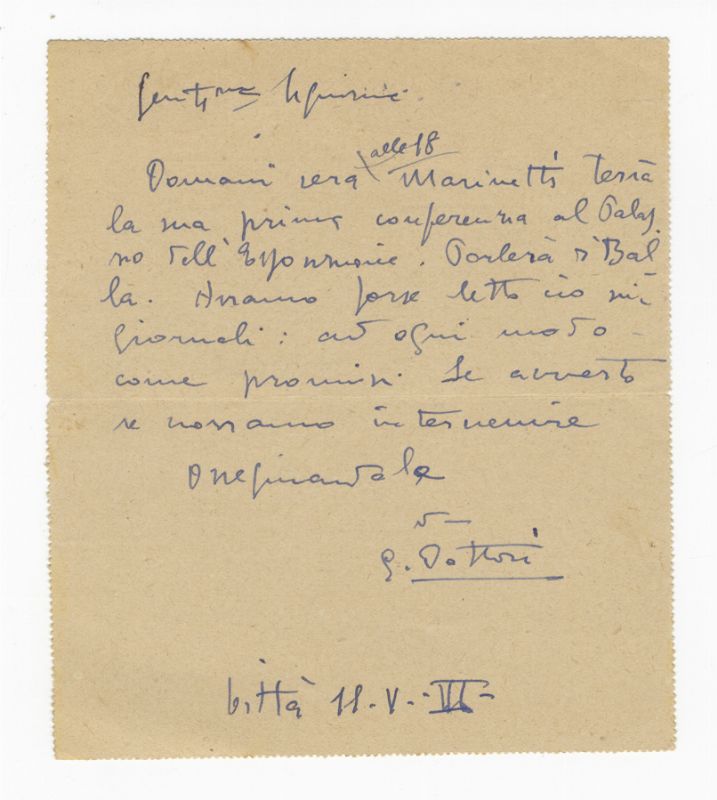 Gentma Signorina.
alle 18
Domani sera Marinetti terrà
la sua prima conferenza al Palaz
zo dell'Esposizione. Parlerà di Bal
la. Avranno forse letto ciò sui
giornali: ad ogni modo -
come promisi. Le avverto
se possano intervenire
Ossequiandole
G. Dottori
Città 11-V-VI-